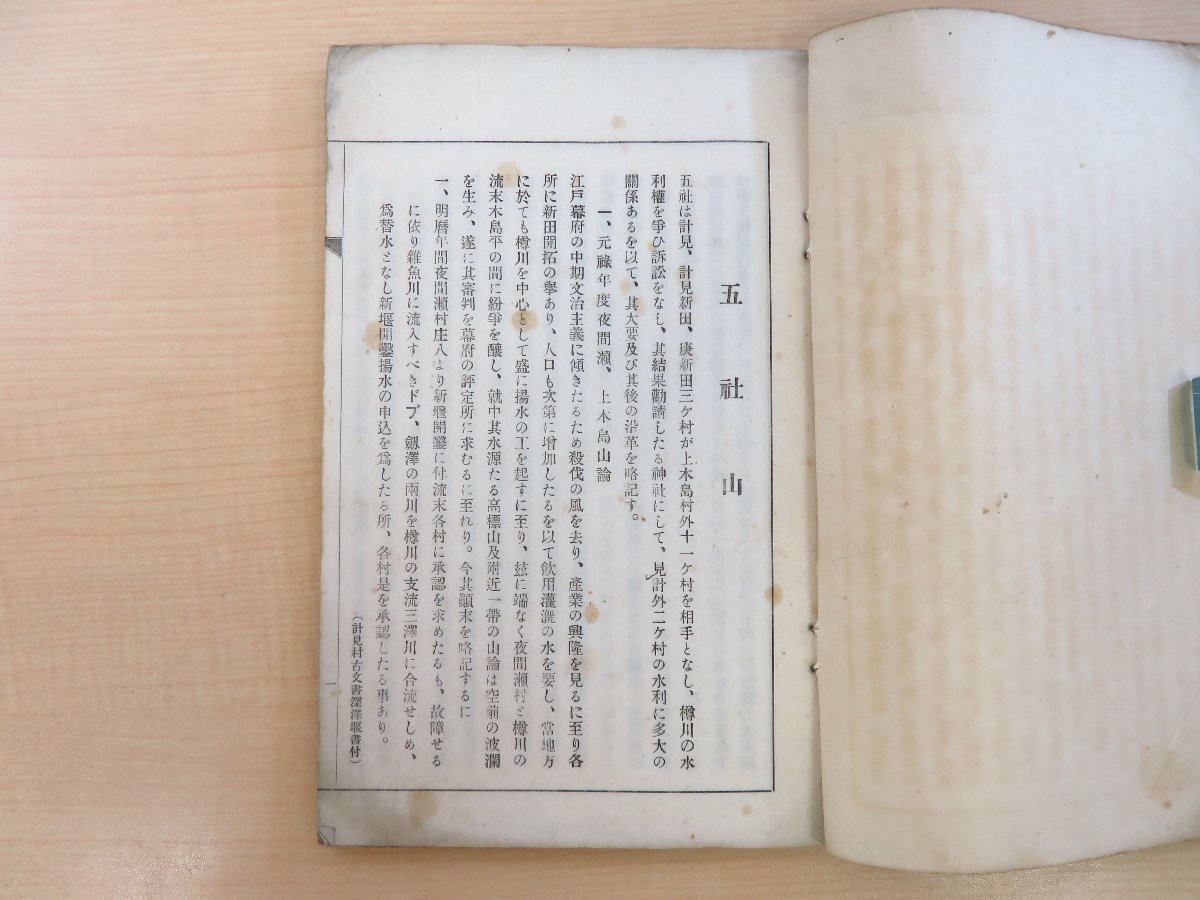 五社山
五社は計見、計見新田、庚新田三ケ村が上木島村外十一ケ村を相手となし、樽川の水
利權を爭ひ訴訟をなし、其結果勸請したる神社にして、見計外二ケ村の水利に多大の
關係あるを以て、其大要及び其後の沿革を略記す。
一、元祿年度夜間瀬、上木島山論
江戸幕府の中期文治主義に傾きたるため殺伐の風を去り、產業の興隆を見るに至り各
所に新田開拓の擧あり、人口も次第に增加したるを以て飮用灌漑の水を要し、當地方
に於ても樽川を中心として盛に揚水の工を起すに至り、玆に端なく夜間瀬村と樽川の
流末木島平の間に紛爭を釀し、就中其水源たる高標山及附近一帶の山論は空前の波瀾
を生み、遂に其審判を幕府の評定所に求むるに至れり。今其顚末を略記するに
一、明曆年間夜間瀬村庄八より新堰開鑿に付流末各村に承認を求めたるも、故障せる
に依り雜魚川に流入すべきドブ、劔澤の兩川を樽川の支流三澤川に合流せしめ、
爲替水となし新堰開鑿揚水の申込を爲したる所、各村是を承認したる事あり。
(計見村古文書深澤堰書付)
一